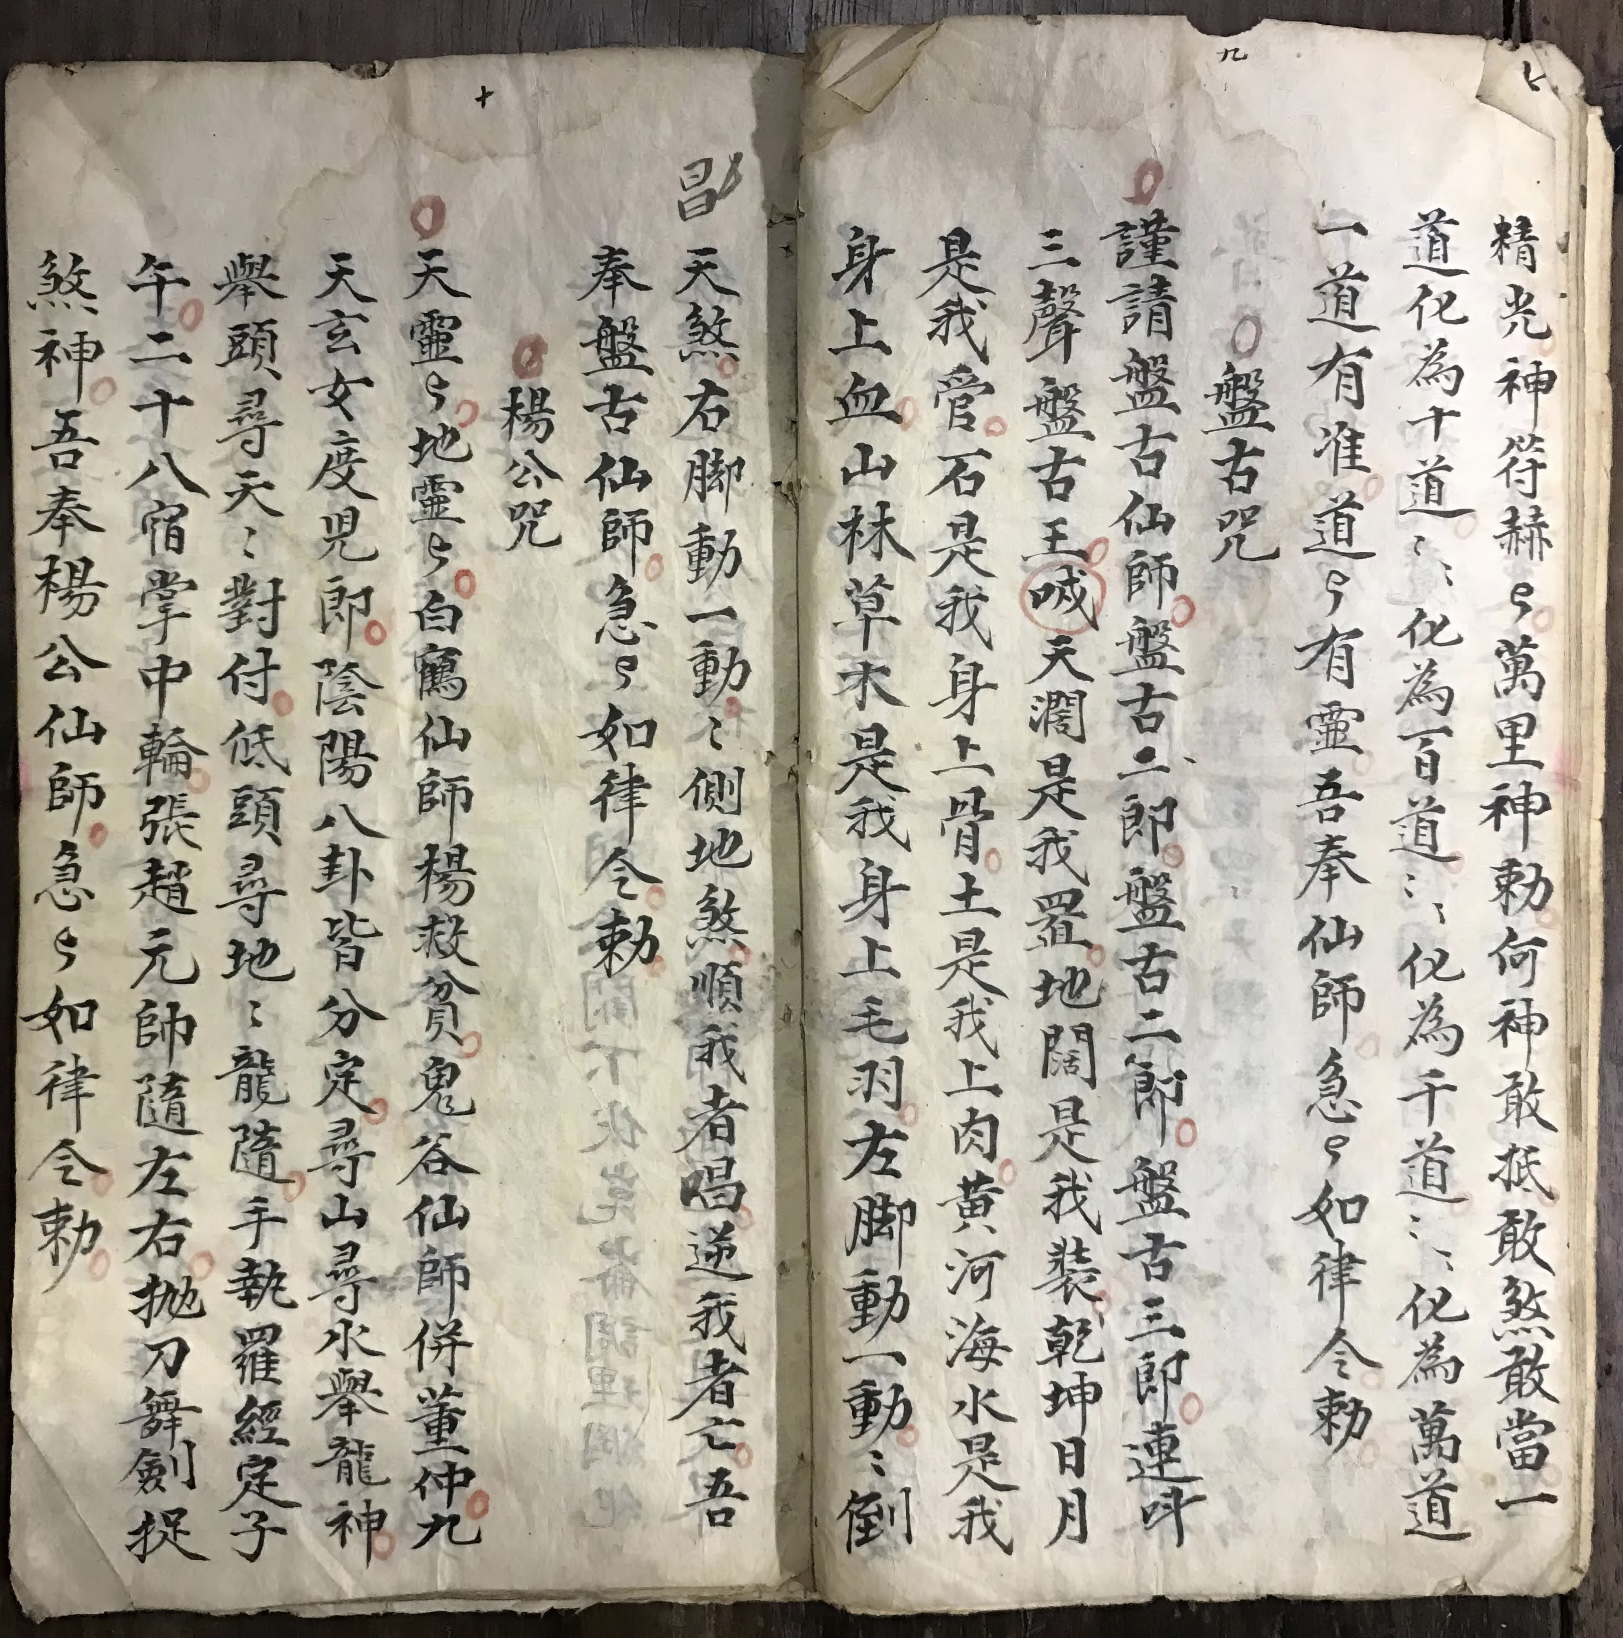 七
九
精光神符赫〻萬里神勅何神敢抵敢煞敢當一
道化為十道〻化為百道〻〻化為千道〻〻化為萬道
一道有准道〻有靈吾奉仙師急〻如律令勅
盤古咒
謹請盤古仙師盤古二郎盤古二郎盤古三郎連呌
三聲盤古王喊天濶是我置地闊是我裝乾坤日月
是我管石是我身上骨土是我上肉黃河海水是我
身上血山林草木是我身上毛羽左脚動一動〻倒
十
昌
天煞右脚動一動〻側地煞順我者唱逆我者亡吾
奉盤古仙師急〻如律令勅
楊公咒
天靈〻地靈〻白鶴仙師楊救貧鬼谷仙師併董仲九
天玄女度児郎陰陽八卦皆分定尋山尋水舉龍神
舉頭尋天〻對付低頭尋地〻龍隨手執羅經定子
午二十八宿掌中輪張趙元帥隨左右拋刀舞劍捉
煞神吾奉楊公仙師急〻如律令勅